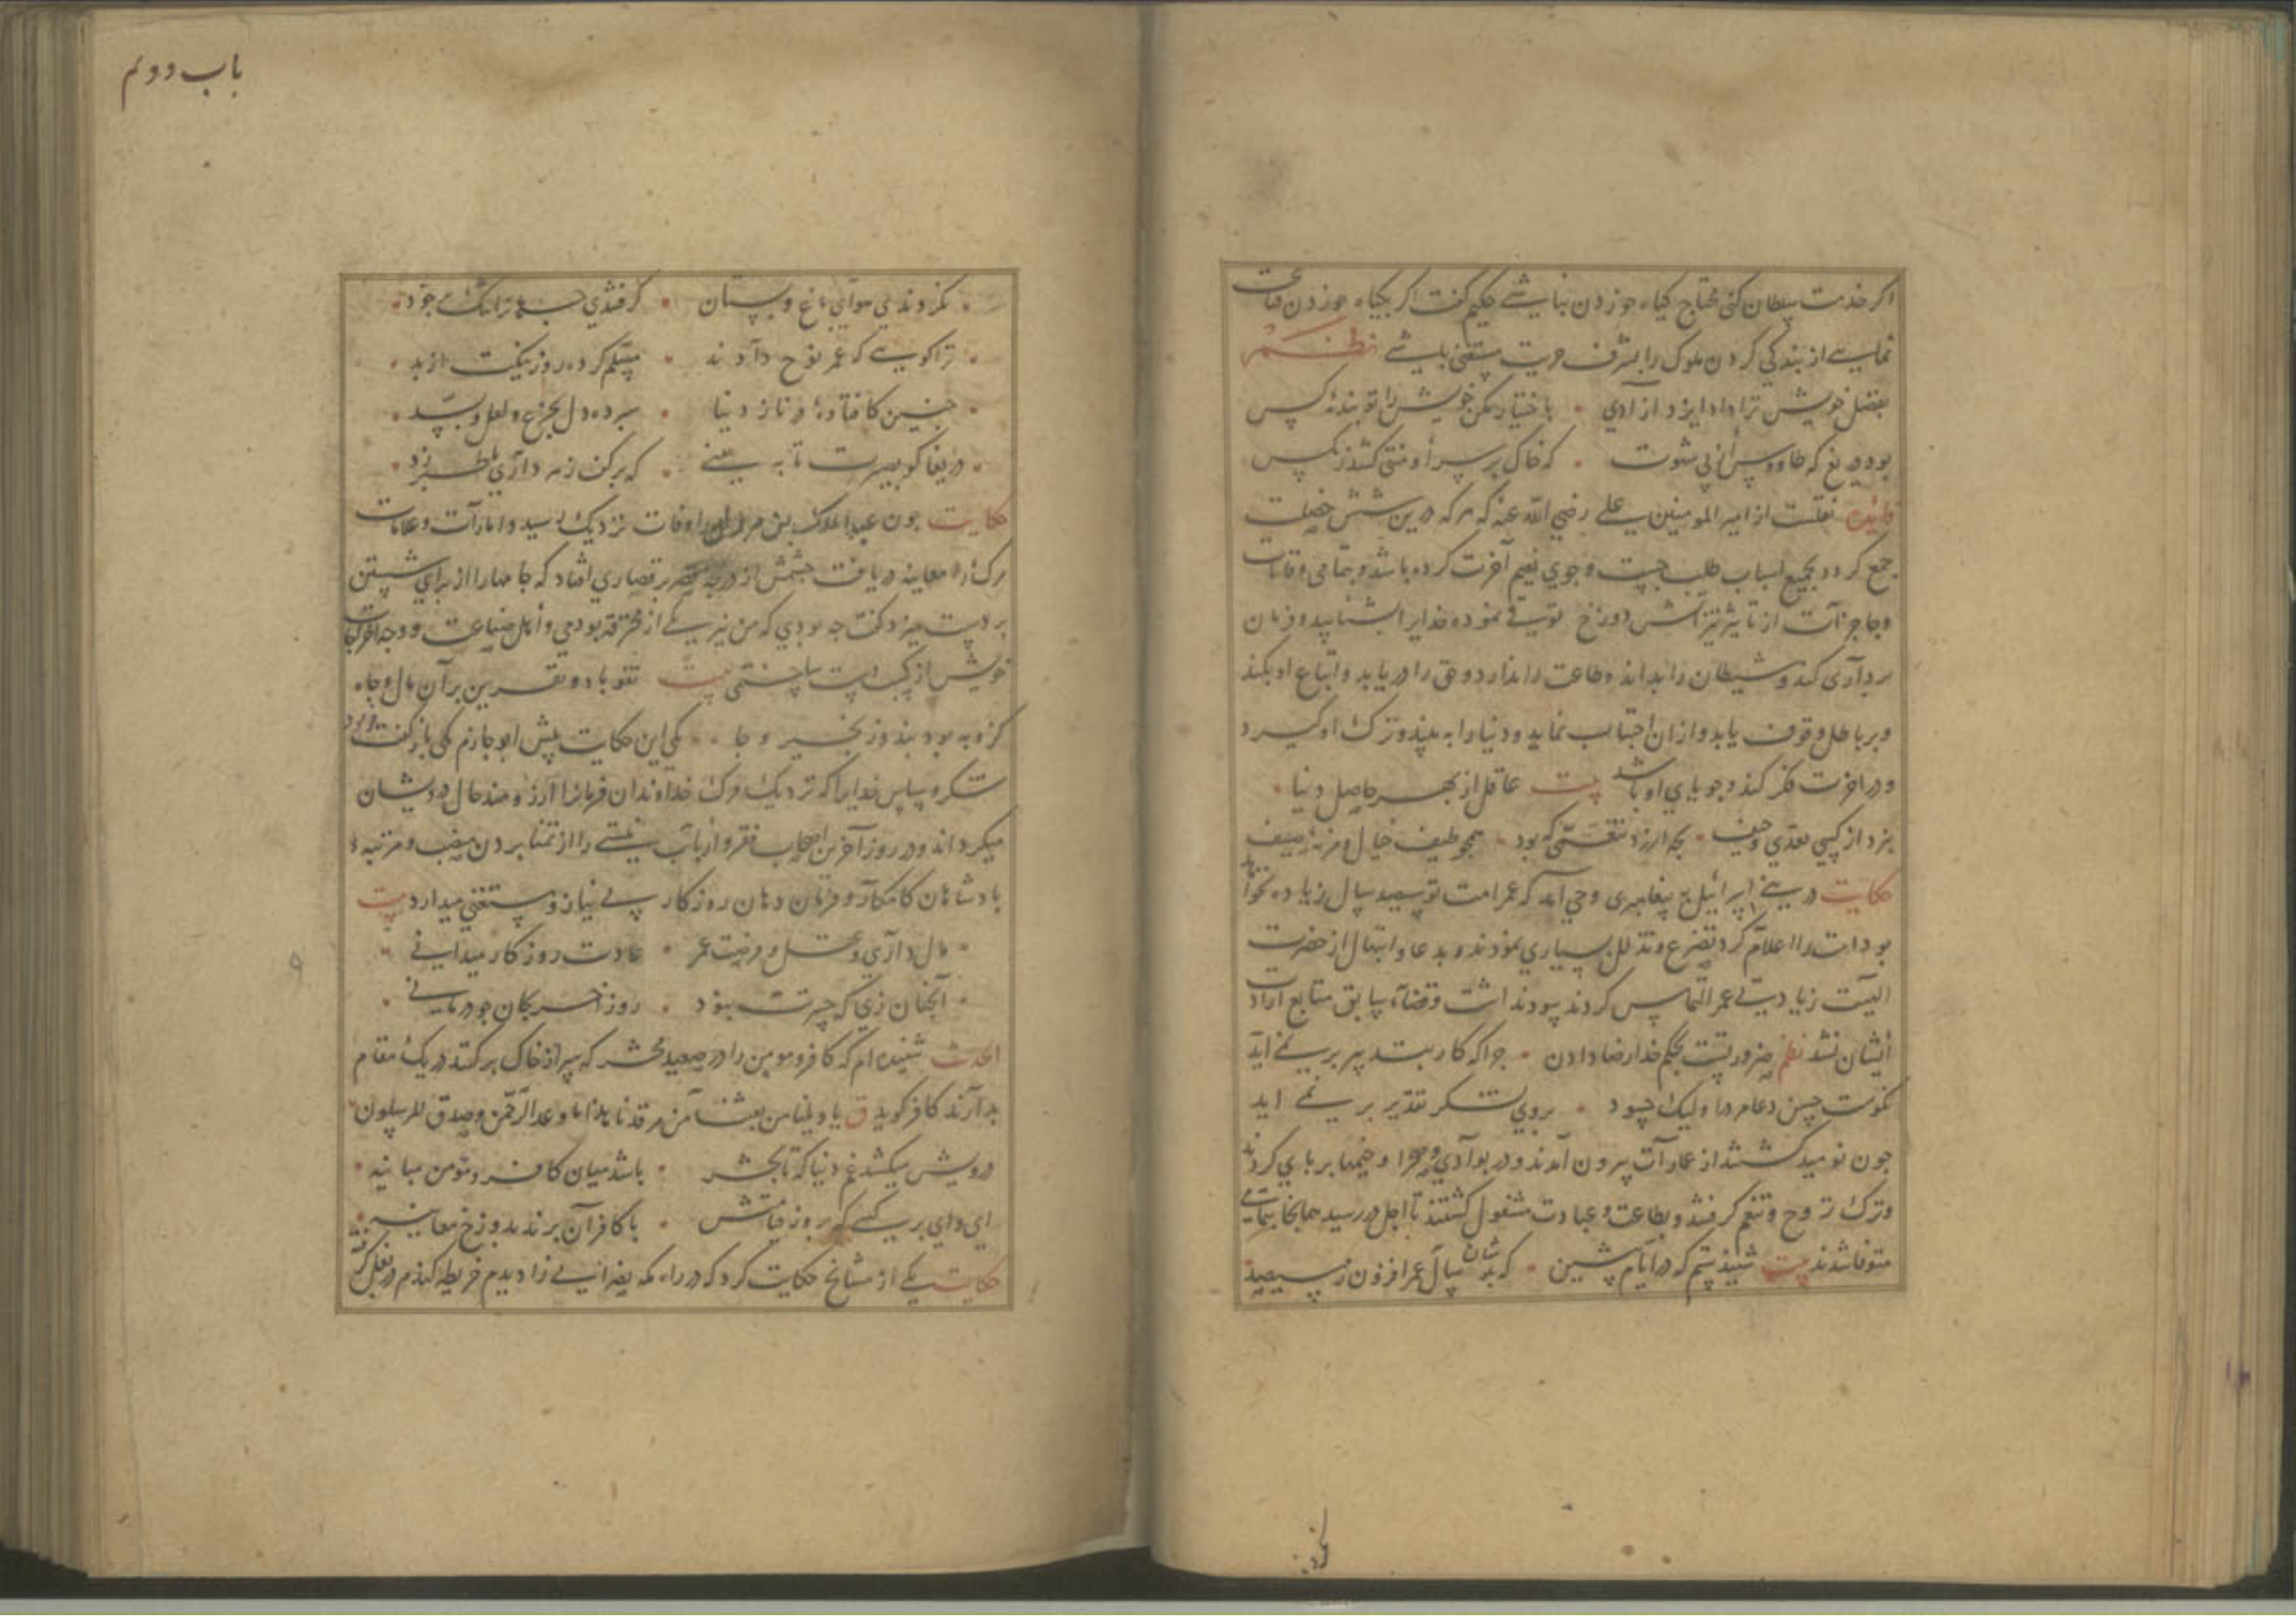 اکر خدمت سلطان کنی محتاج کیاه خوردن نباشی حکیم کفت اکر بکیاه خوردن قناعت
نمایی از بندکی کردن ملوک را بشرف حریت مستغنی باشی نظم
بفضل خویش ترا داد ایزد آزادی باختیار مکن خویش را تو بنده کس
بود دریغ که طاووس از پی شهوت که خاک بر سر او منتی کشد ز مکس
فایده نقلست از امیر المومنین علی رضی الله عنه که هر که درین شش خصلت
جمع کردد بجمیع اسباب طلب جست و جوی نعیم آخرت کرده باشد و بتمامی
از تاثیر تیز آتش دوزخ نموده خدایرا بشناسد و فرمان
برداری کند و شیطان را بداند و طاعت را ندارد و حق را دریابد و اتباع او بکند
و بر باطل وقوف یابد و از آن اجتناب نماید و دنیا را به بیند و ترک او کیرد
و در اخرت فکر کند و جویای او باشد بیت عاقل از بهر حاصل دنیا
نبرد از کسی تعدی و حیف بچه ارزد تنعمی که بود همچو طیف خیال و مزنه صیف
حکایت در بنی اسرائیل به پیغامبری وحی آمد که عمر امت تو سیصد سال زیاده نخواهد
بود امت را اعلام کرد تضرع و تذلل بسیاری نمودند و بدعا و ابتهال از حضرت
الهیت زیادتی عمر التماس کردند سود نداشت و قضاء سابق متابع ارادت
ایشان نشد نظم ضرورتست بحکم خدا رضا دادن چرا که کار بتدبیر بر نمی آید
نکوست حسن دعاء ما ولیک چه سود بروی لشکر تقدیر بر نمی اید
چون نومید کشتند از عمارات بیرون آمدند و در بوادی و صحرا و خیمها بر پای کردند
و ترک تزوج و تنعم کرفتند و بطاعت و عبادت مشغول کشتند تا اجل در رسید همانجا بتمامی
متوفا شدند بیت شنیدستم که در ایام پیشین که بدشان سال عمر افزون ز سیصد
نکردند
باب دوم
نکردندی هوای باغ و بستان کرفتندی
ترا کویی که عمر نوح دادند مسلم کرده روز نیکت از بد
چنین کافتادهٔ در ناز دنیا سپرده دل بجزع و لعل و بسد
دریغا کو بصیرت تا به بینی که بر کف زهر داری یا طبرزد
حکایت چون عبد الملک بن مروان را وفات نزدیک رسید و امارات و علامات
مرک را معاینه دریافت چشمش از دریچه قصر بر قصاری افتاد که جامها را از برای شستن
بر دست میزد کفت چه بودی که من نیز یکی از محترفه بودمی و اهل صناعت و وجه اخراجات
خویش از کسب دست ساختمی بیت تفو باد و نفرین بر آن مال و جاه
کزو به بود بند و زنجیر و چاه کی این حکایت پیش ابو حازم مکی باز کفت
شکر و سپاس خدایرا که نزدیک مرک خداوندان فرمانرا آرزومند حال درویشان
میکرداند و در روز آخرین اصحاب فقر و ارباب نیستی را از تمنا بردن منصب و مرتبهٔ
پادشاهان کامکار و فرمان دهان روزکار بی نیاز و مستغنی میدارد بیت
مال داری و عقل و فرصت عمر عادت روزکار میدانی
آنچنان زی که حسرتت نبود روز اخر بکان چو درمانی
احدث شنیده ام که کافر و مومن را در صعید محشر که سر از خاک بر کنند در یک مقام
بدارند کافر کوید ق یا ویلنا من بعثنا من مرقدنا هذا ما وعد الرحمن وصدق المرسلون
درویش میکشد غم دنیا که تا بحشر باشد میان کافر و مؤمن مباینه
ای وای بر کسی که بروز قیامتش با کافران برند بدوزخ معاینه
حکایت یکی از مشایخ حکایت کرد که در راه مکه اعرابی را دیدم خریطه کندم در بغل کرفته